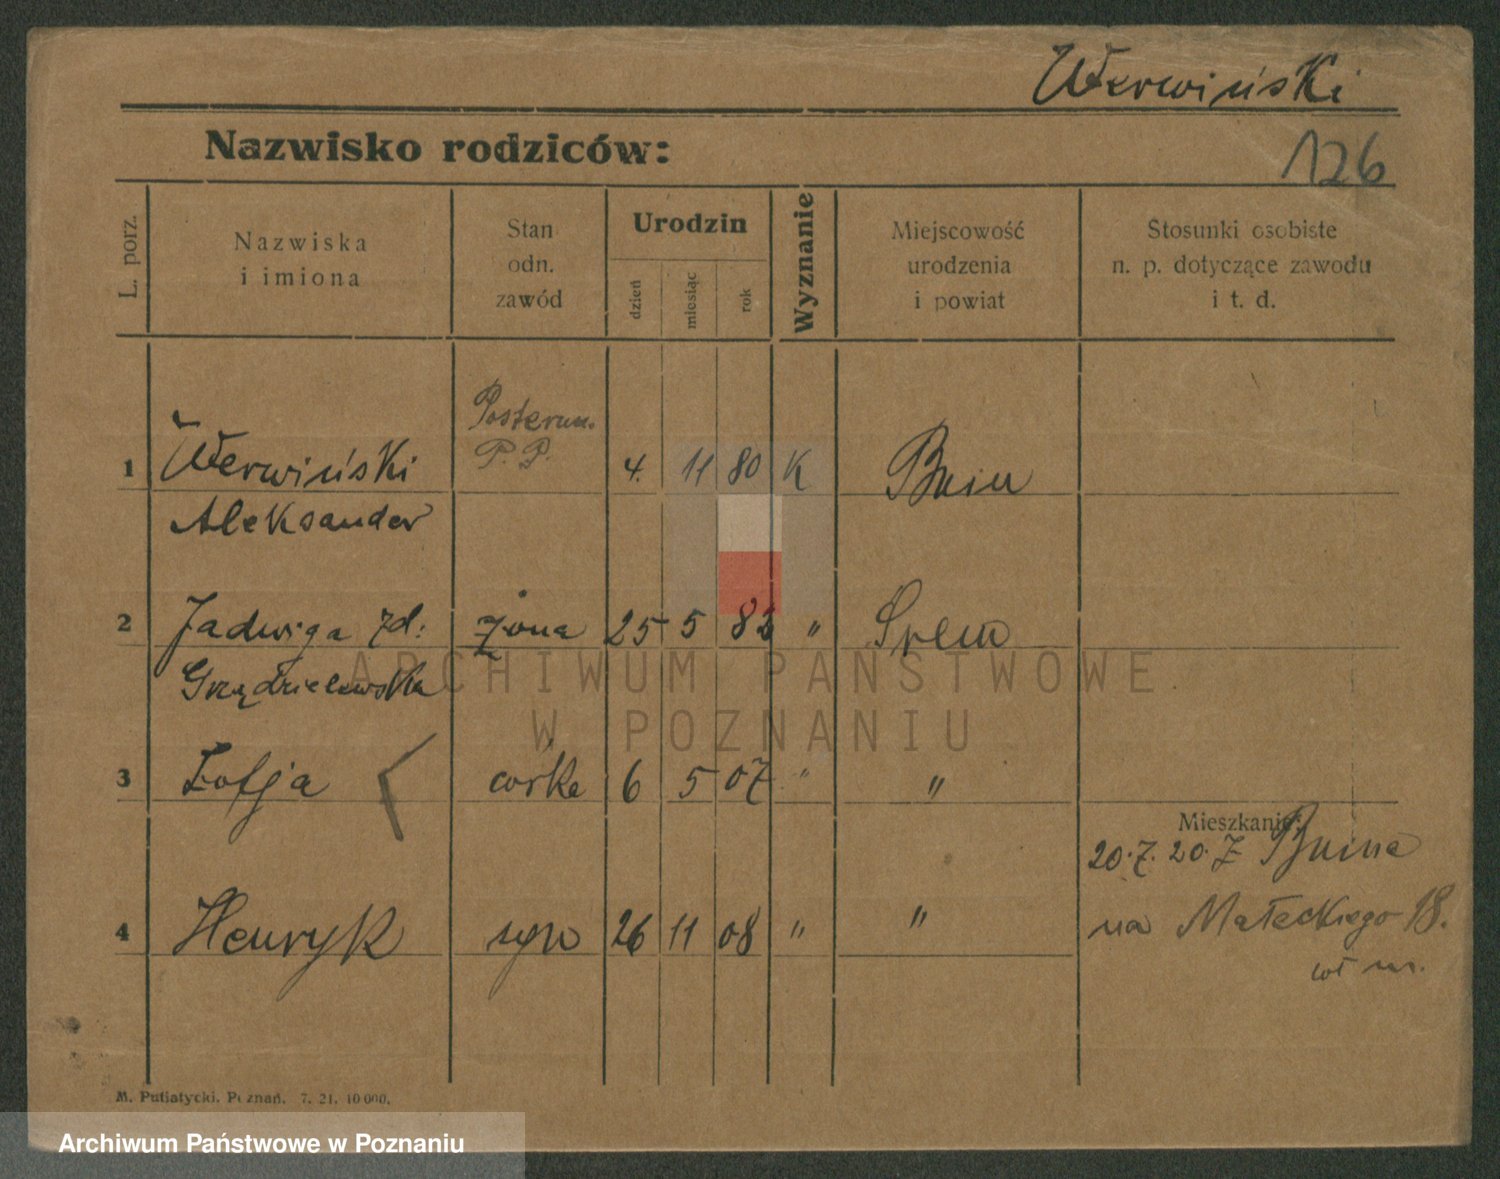 Werwiński
Nazwisko rodziców:
126
L. porz.
Nazwiska
i imiona
Stan
odn.
zawód
Urodzin
dzień
miesiąc
rok
Wyznanie
Miejscowość
urodzenia
i powiat
Stosunki osobiste
n. p. dotyczące zawodu
i t. d.
Posterun.
P. P.
1 Werwiński 4. 11 80 K Bnin
Aleksander
2 Jadwiga zd: żona 25 5 83 " Śrem
Grządzielewska
3 Zofja córka 6 5 07 " "
Mieszkanie:
20.7.20. Z Bnina
4 Henryk syn 26 11 08 " "
na Małeckiego 18.
M. Putiatycki, Poznań. 7. 21. 10 000.
ARCHIWUM PAŃSTWOWE
W POZNANIU
Archiwum Państwowe w Poznaniu